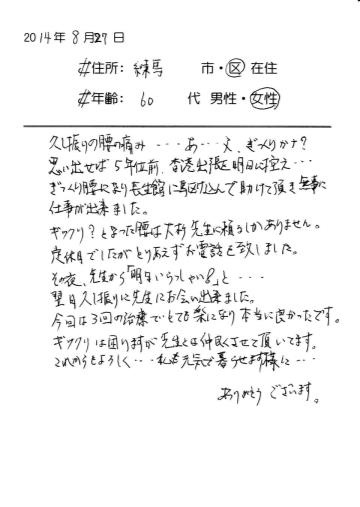 2014年 8月27日
住所: 練馬 市・区 在住
年齢: 60 代 男性・女性
久し振りの腰の痛み・・・あ・・え、ぎっくりかな?
思い出せば5年位前、香港出張を明日に控え・・・
ぎっくり腰になり長生館に駆け込んで助けて頂き無事に
仕事が出来ました。
ギックリ?となった腰は大杉先生に頼るしかありません。
定休日でしたがとりあえずお電話を致しました。
その夜、先生から「明日いらっしゃい」と・・・
翌日久し振りに先生にお会い出来ました。
今回は3回の治療でとても楽になり本当に良かったです。
ギックリは困りますが先生とは仲良くさせて頂いてます。
これからもよろしく・・・私も元気で暮らせます様に・・・
ありがとうございます。